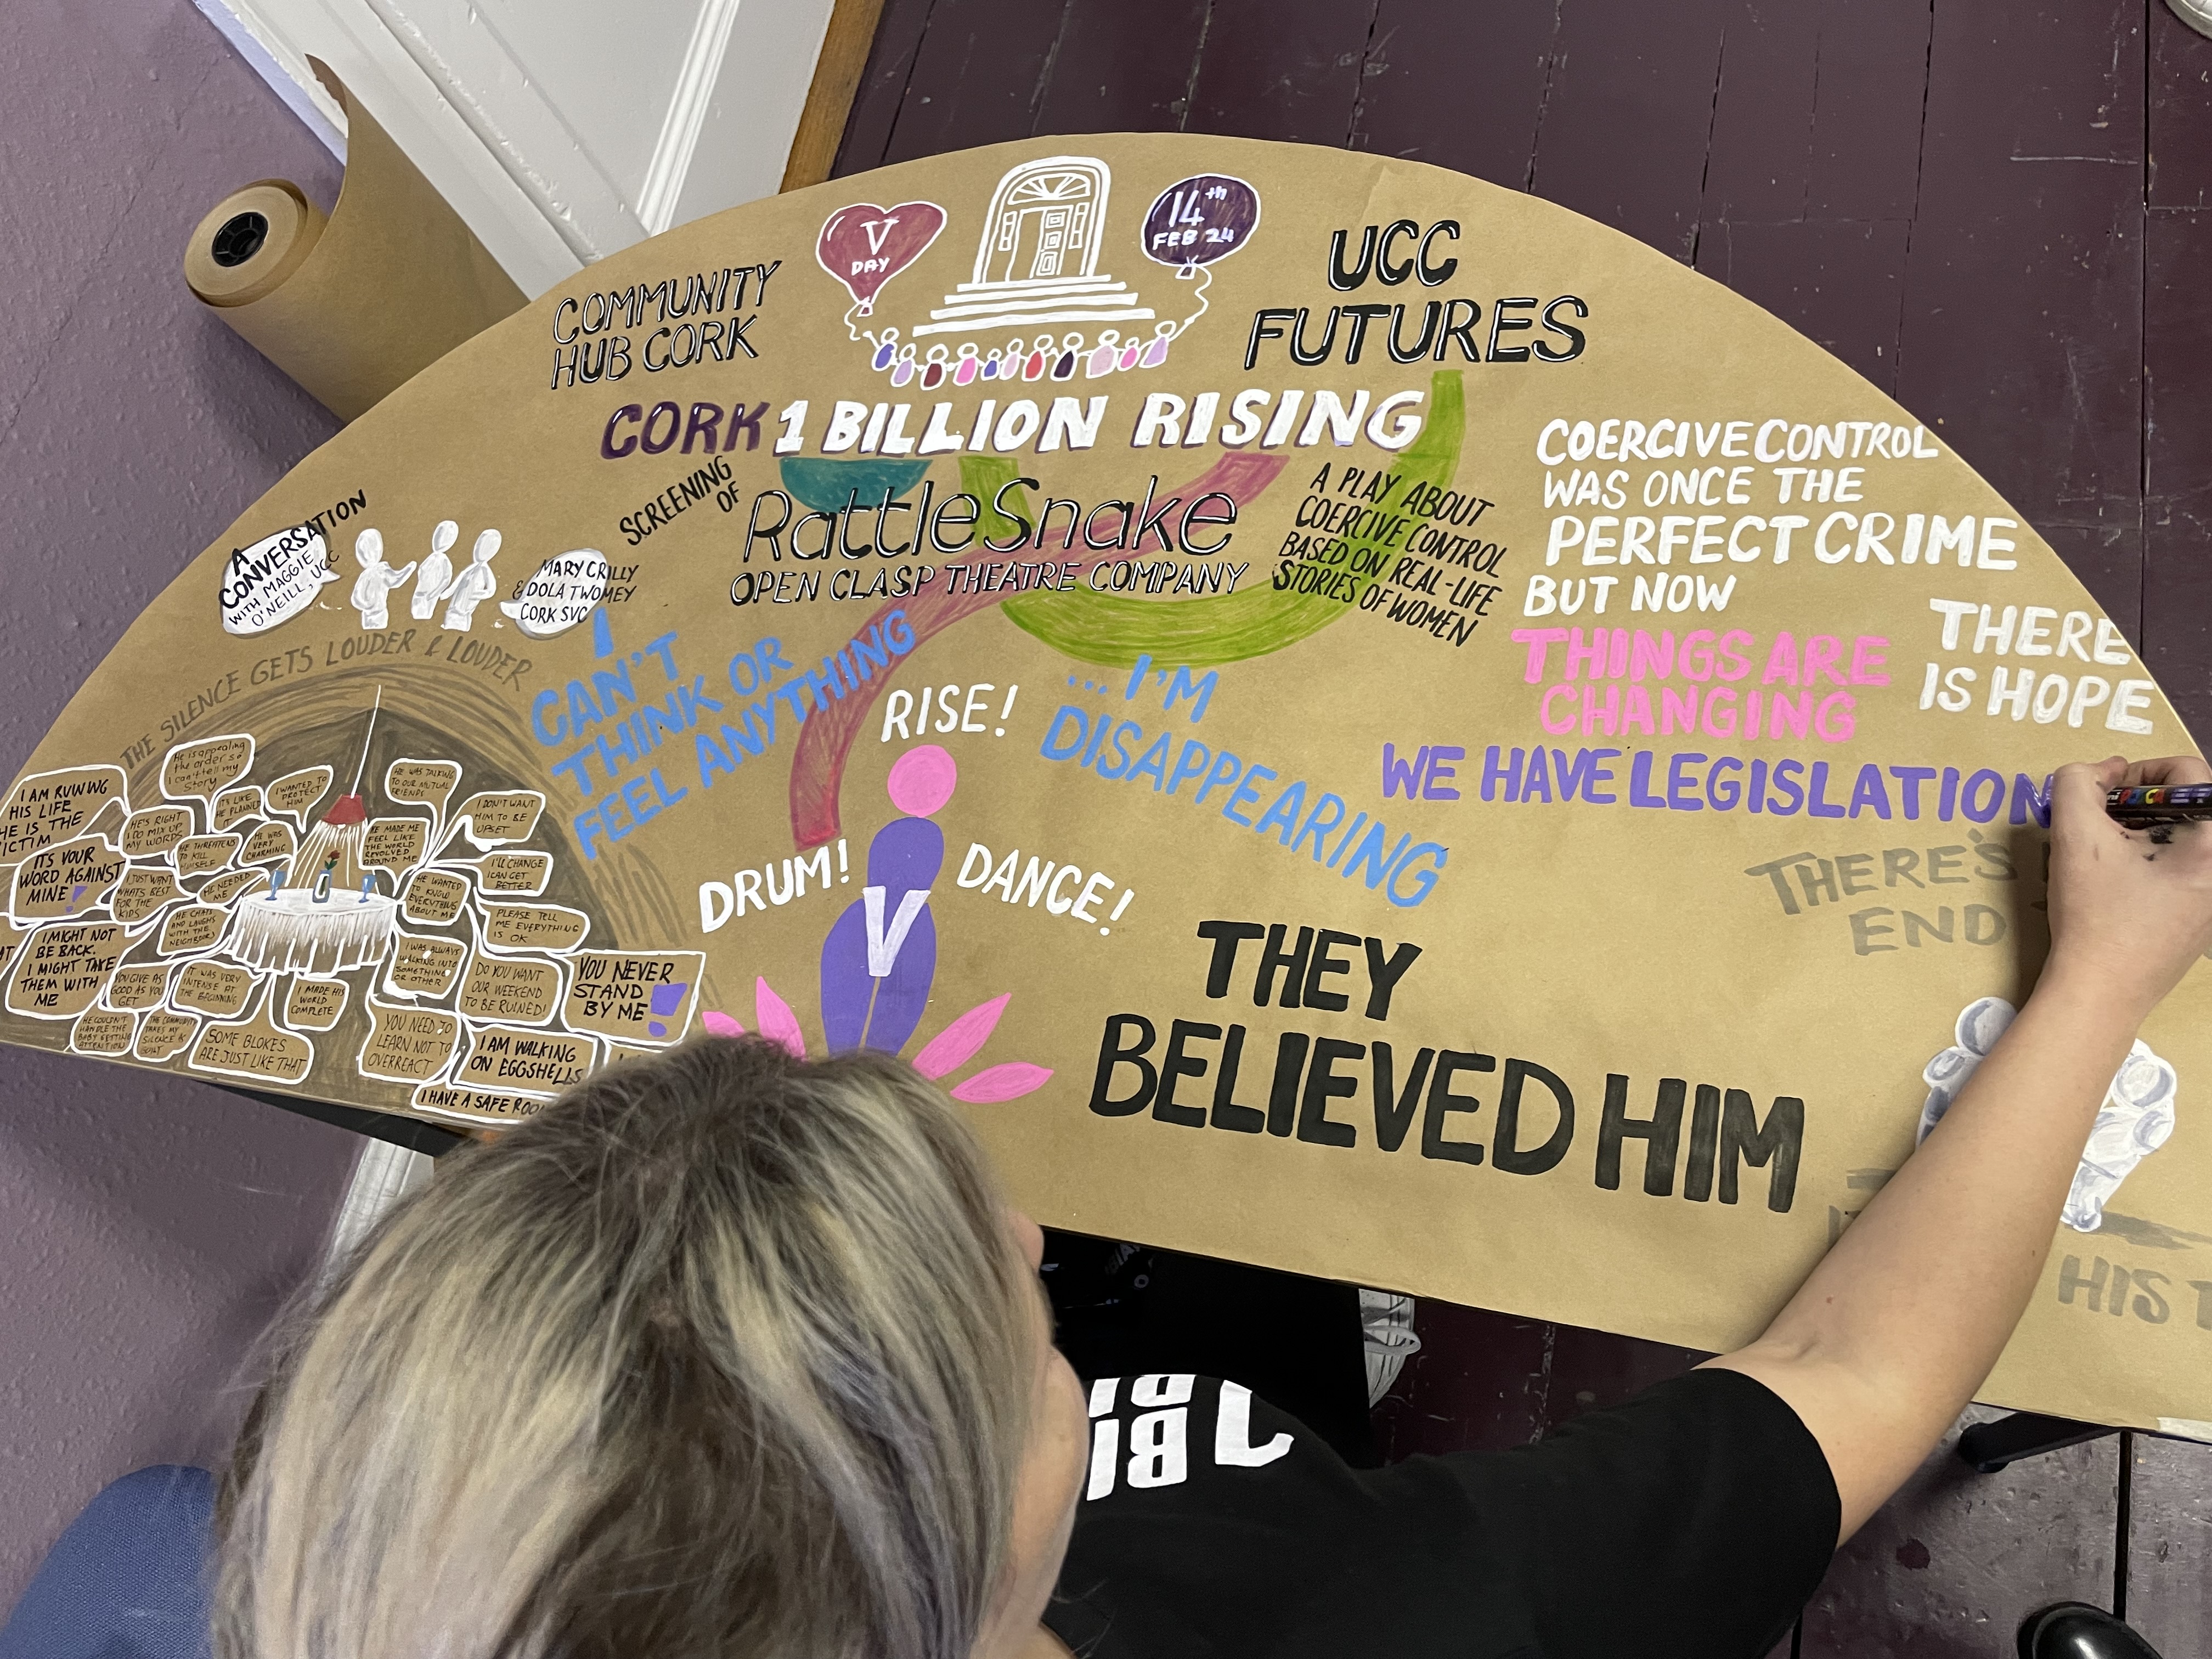 V
DAY
14th
FEB 24
COMMUNITY
HUB CORK
UCC
FUTURES
CORK 1 BILLION RISING
SCREENING
OF
RattleSnake
OPEN CLASP THEATRE COMPANY
A PLAY ABOUT
COERCIVE CONTROL
BASED ON REAL-LIFE
STORIES OF WOMEN
COERCIVE CONTROL
WAS ONCE THE
PERFECT CRIME
BUT NOW
THINGS ARE
CHANGING
THERE
IS HOPE
WE HAVE LEGISLATION
THERE'S
END
A
CONVERSATION
WITH MAGGIE
O'NEILL, UCC
MARY CRILLY
& DOLA TWOMEY
CORK SVC
THE SILENCE GETS LOUDER & LOUDER
I
CAN'T
THINK OR
FEEL ANYTHING
...I'M
DISAPPEARING
RISE!
DRUM!
DANCE!
V
THEY
BELIEVED HIM
HIS
He is appealing
the order so
I can't tell my
story
I AM RUINING
HIS LIFE
HE IS THE
VICTIM
IT'S LIKE
HE PLANNED
I WANTED TO
PROTECT
HIM
HE WAS TALKING
TO OUR MUTUAL
FRIENDS
I DON'T WANT
HIM TO BE
UPSET
HE'S RIGHT
I DO MIX UP
MY WORDS
HE THREATENS
TO KILL
HIMSELF
HE WAS
VERY
CHARMING
HE MADE ME
FEEL LIKE
THE WORLD
REVOLVED
AROUND ME
I'LL CHANGE
I CAN GET
BETTER
ITS YOUR
WORD AGAINST
MINE!
I JUST WANT
WHATS BEST
FOR THE
KIDS
HE NEEDED
ME
HE WANTED
TO KNOW
EVERYTHING
ABOUT ME
HE CHATS
AND LAUGHS
WITH THE
NEIGHBORS
PLEASE TELL
ME EVERYTHING
IS OK
I MIGHT NOT
BE BACK.
I MIGHT TAKE
THEM WITH
ME
YOU GIVE AS
GOOD AS YOU
GET
IT WAS VERY
INTENSE AT
THE BEGINNING
I MADE HIS
WORLD
COMPLETE
I WAS ALWAYS
WALKING INTO
SOMETHING
OR OTHER
DO YOU WANT
OUR WEEKEND
TO BE RUINED!
YOU NEVER
STAND
BY ME!
HE COULDN'T
HANDLE THE
BABY GETTING
ATTENTION
THE COMMUNITY
TAKES MY
SILENCE AS
GUILT
SOME BLOKES
ARE JUST LIKE THAT
YOU NEED TO
LEARN NOT TO
OVERREACT
I AM WALKING
ON EGGSHELLS
I HAVE A SAFE ROOM
POSCA